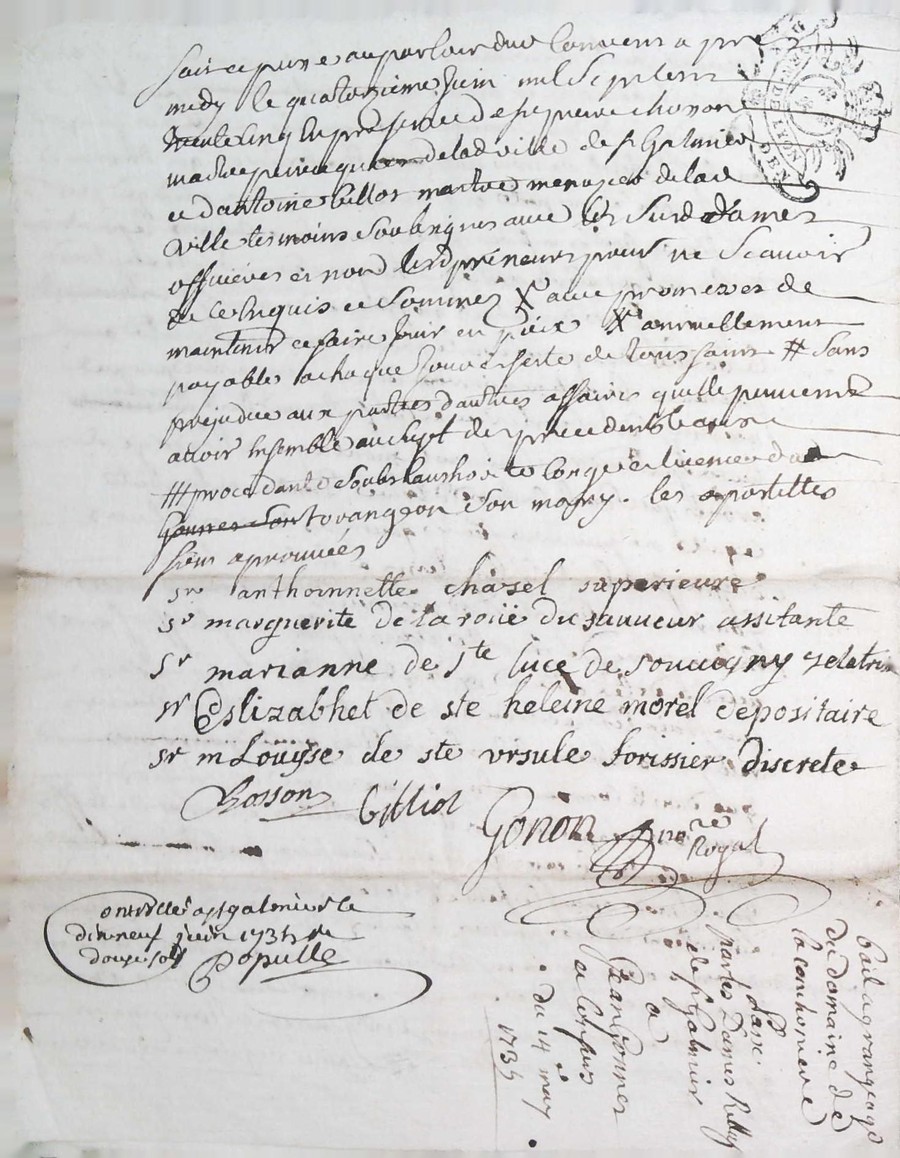 fait et passé au parloir dud Couvent apres
midy le quatorzieme Juin mil Sept cent
trente cinq En presence de Sr pierre
maitre perruquier de lad ville de St Galmier
et d'antoine Gilliot maitre menuzier de lad
ville temoins Soubsignes avec les Susd dames
officieres et non lesd preneurs pour ne Scavoir
de ce Enquis et Sommes X avec promesses de
maintenir et faire Jouir en paix X annuellement
payable a chaque jour et feste de toussaint # Sans
prejudice aux parties d'autres affaires qu'elle peuvent
avoir Ensemble au Sujet du precedent bail
### procedant de Soubs lauthorité Conge et licence dud
son mary. les apostilles
Sieur aprouvées
sr anthoinnette chasel superieure
sr marguerite de la roüe du sauveur assitante
sr marianne de ste luce de souvigny zelatri
sr Eslizabhet de ste heleine morel depositaire
sr m Louÿse de ste vrsule forissier discrete
Gilliot
Gonon nore
Royal
ontrollé a st galmier le
dixneuf juin 1735 
douze sols
Populle
bail a grangeage
du domaine de
passé
par les Dames
de St Galmier
a
Jean Bonnet
du 14 may
1735